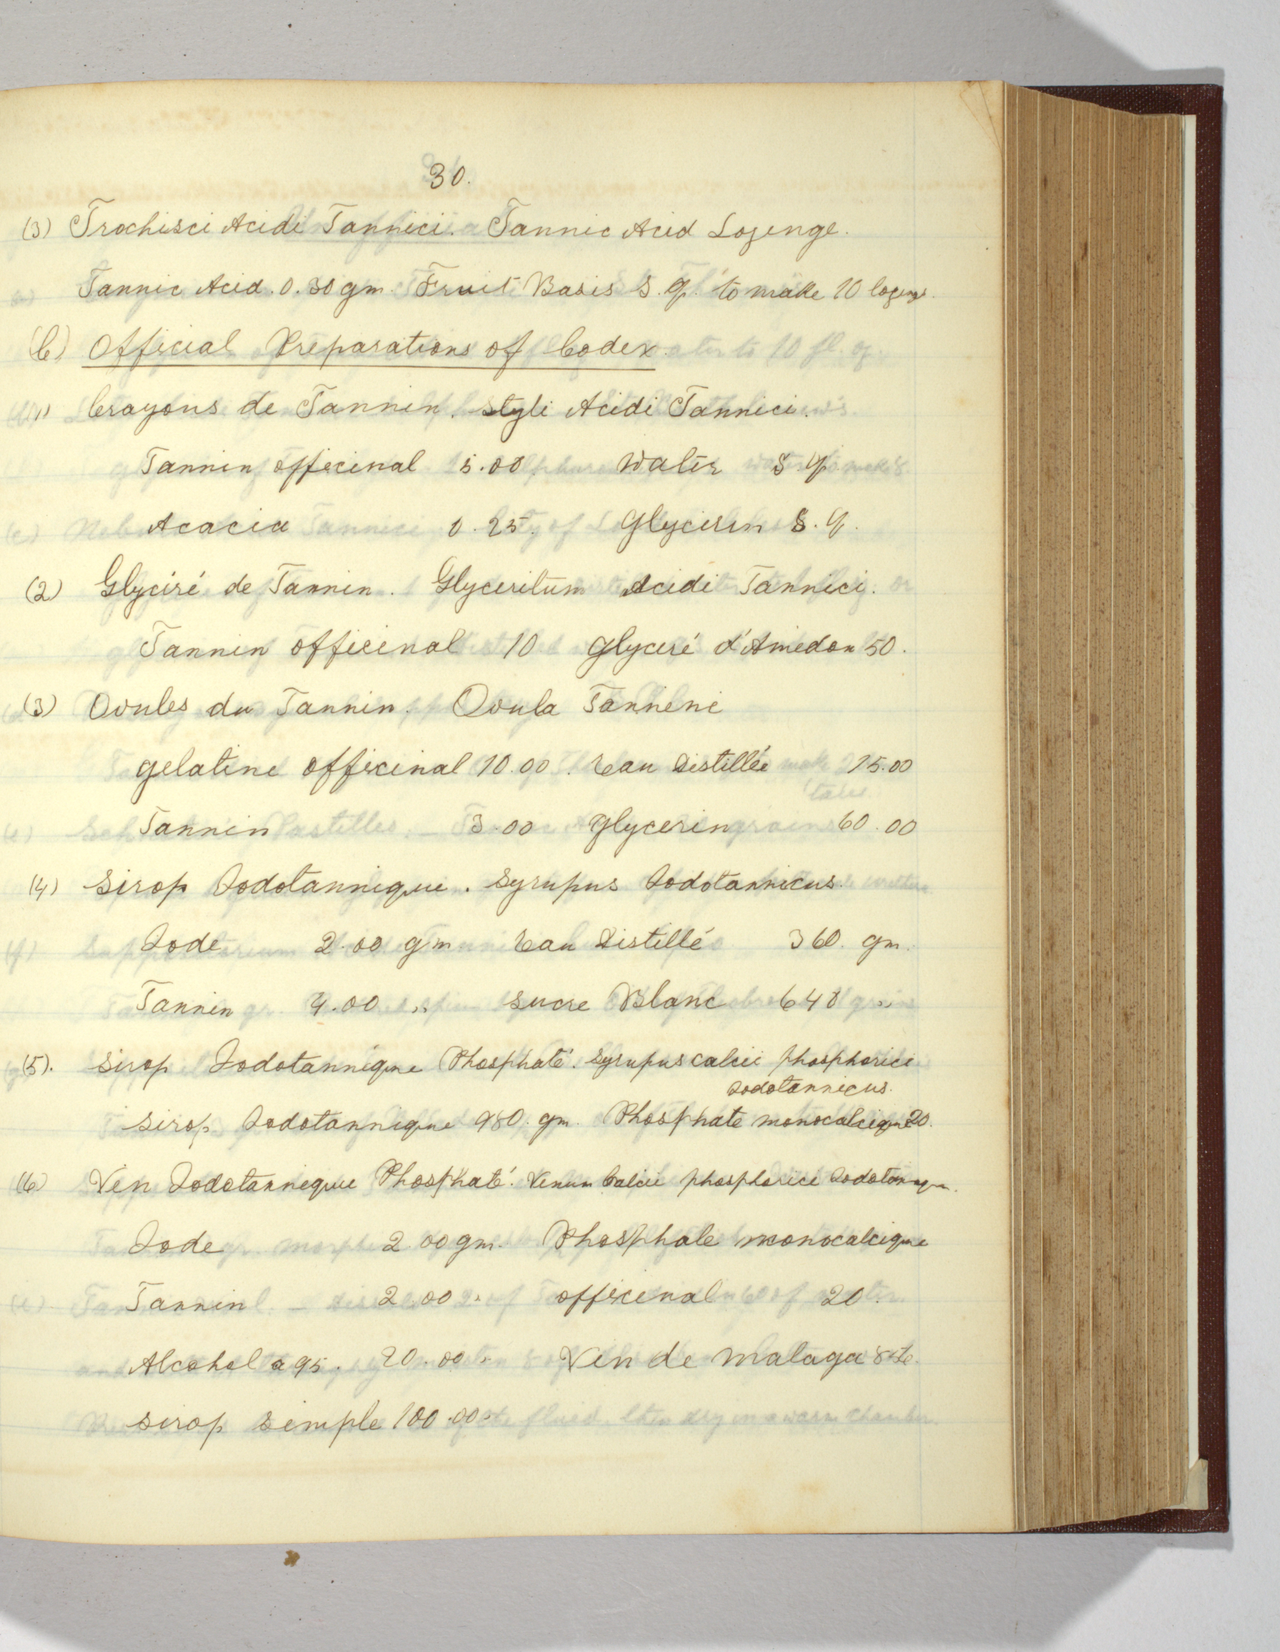 30.
(3) Trochisci Acidi Tannici. Tannic Acid Lozenge.
Tannic Acid. 0.30 gm Fruit Basis S. q. to make 10 lozeng.
(C) Official Preparations of Codex.
(1) Crayons de Tannin. Styli Acidi Tannici.
Tannin officinal 5.00 Water S q
Acacia 0.25. Glycerin S. q.
(2) Glycéré de Tannin. Glyceritum Acidi Tannici.
Tannin officinal 10 Glyceré d'Amidon 50.
(3) Ovules du Tannin. Ovula Tannini
Gelatine officinal 10.00. Eau Distillée 15.00
Tannin 3.00 Glycerin 60.00
(4) Sirop Iodotannique. Syrupus Iodotannicus.
Iode 2.00 gm Eau Distillé 360. gm.
Tannin 4.00 " Sucre Blanc 640 "
(5). Sirop Iodotannique Phosphaté. Syrupus calcii phosphorici
Iodotannicus.
Sirop Iodotannique 980. gm. Phosphate monocalcique 20.
(6) Vin Iodotannique Phosphaté. Vinum Calcii phosphorici
Iode 2.00 gm. Phosphate monocalcique
Tannin 2.00 " officinal 20.
Alcohol a 95. 20.00 " Vin de Malaga
Sirop Simple 100.00 "